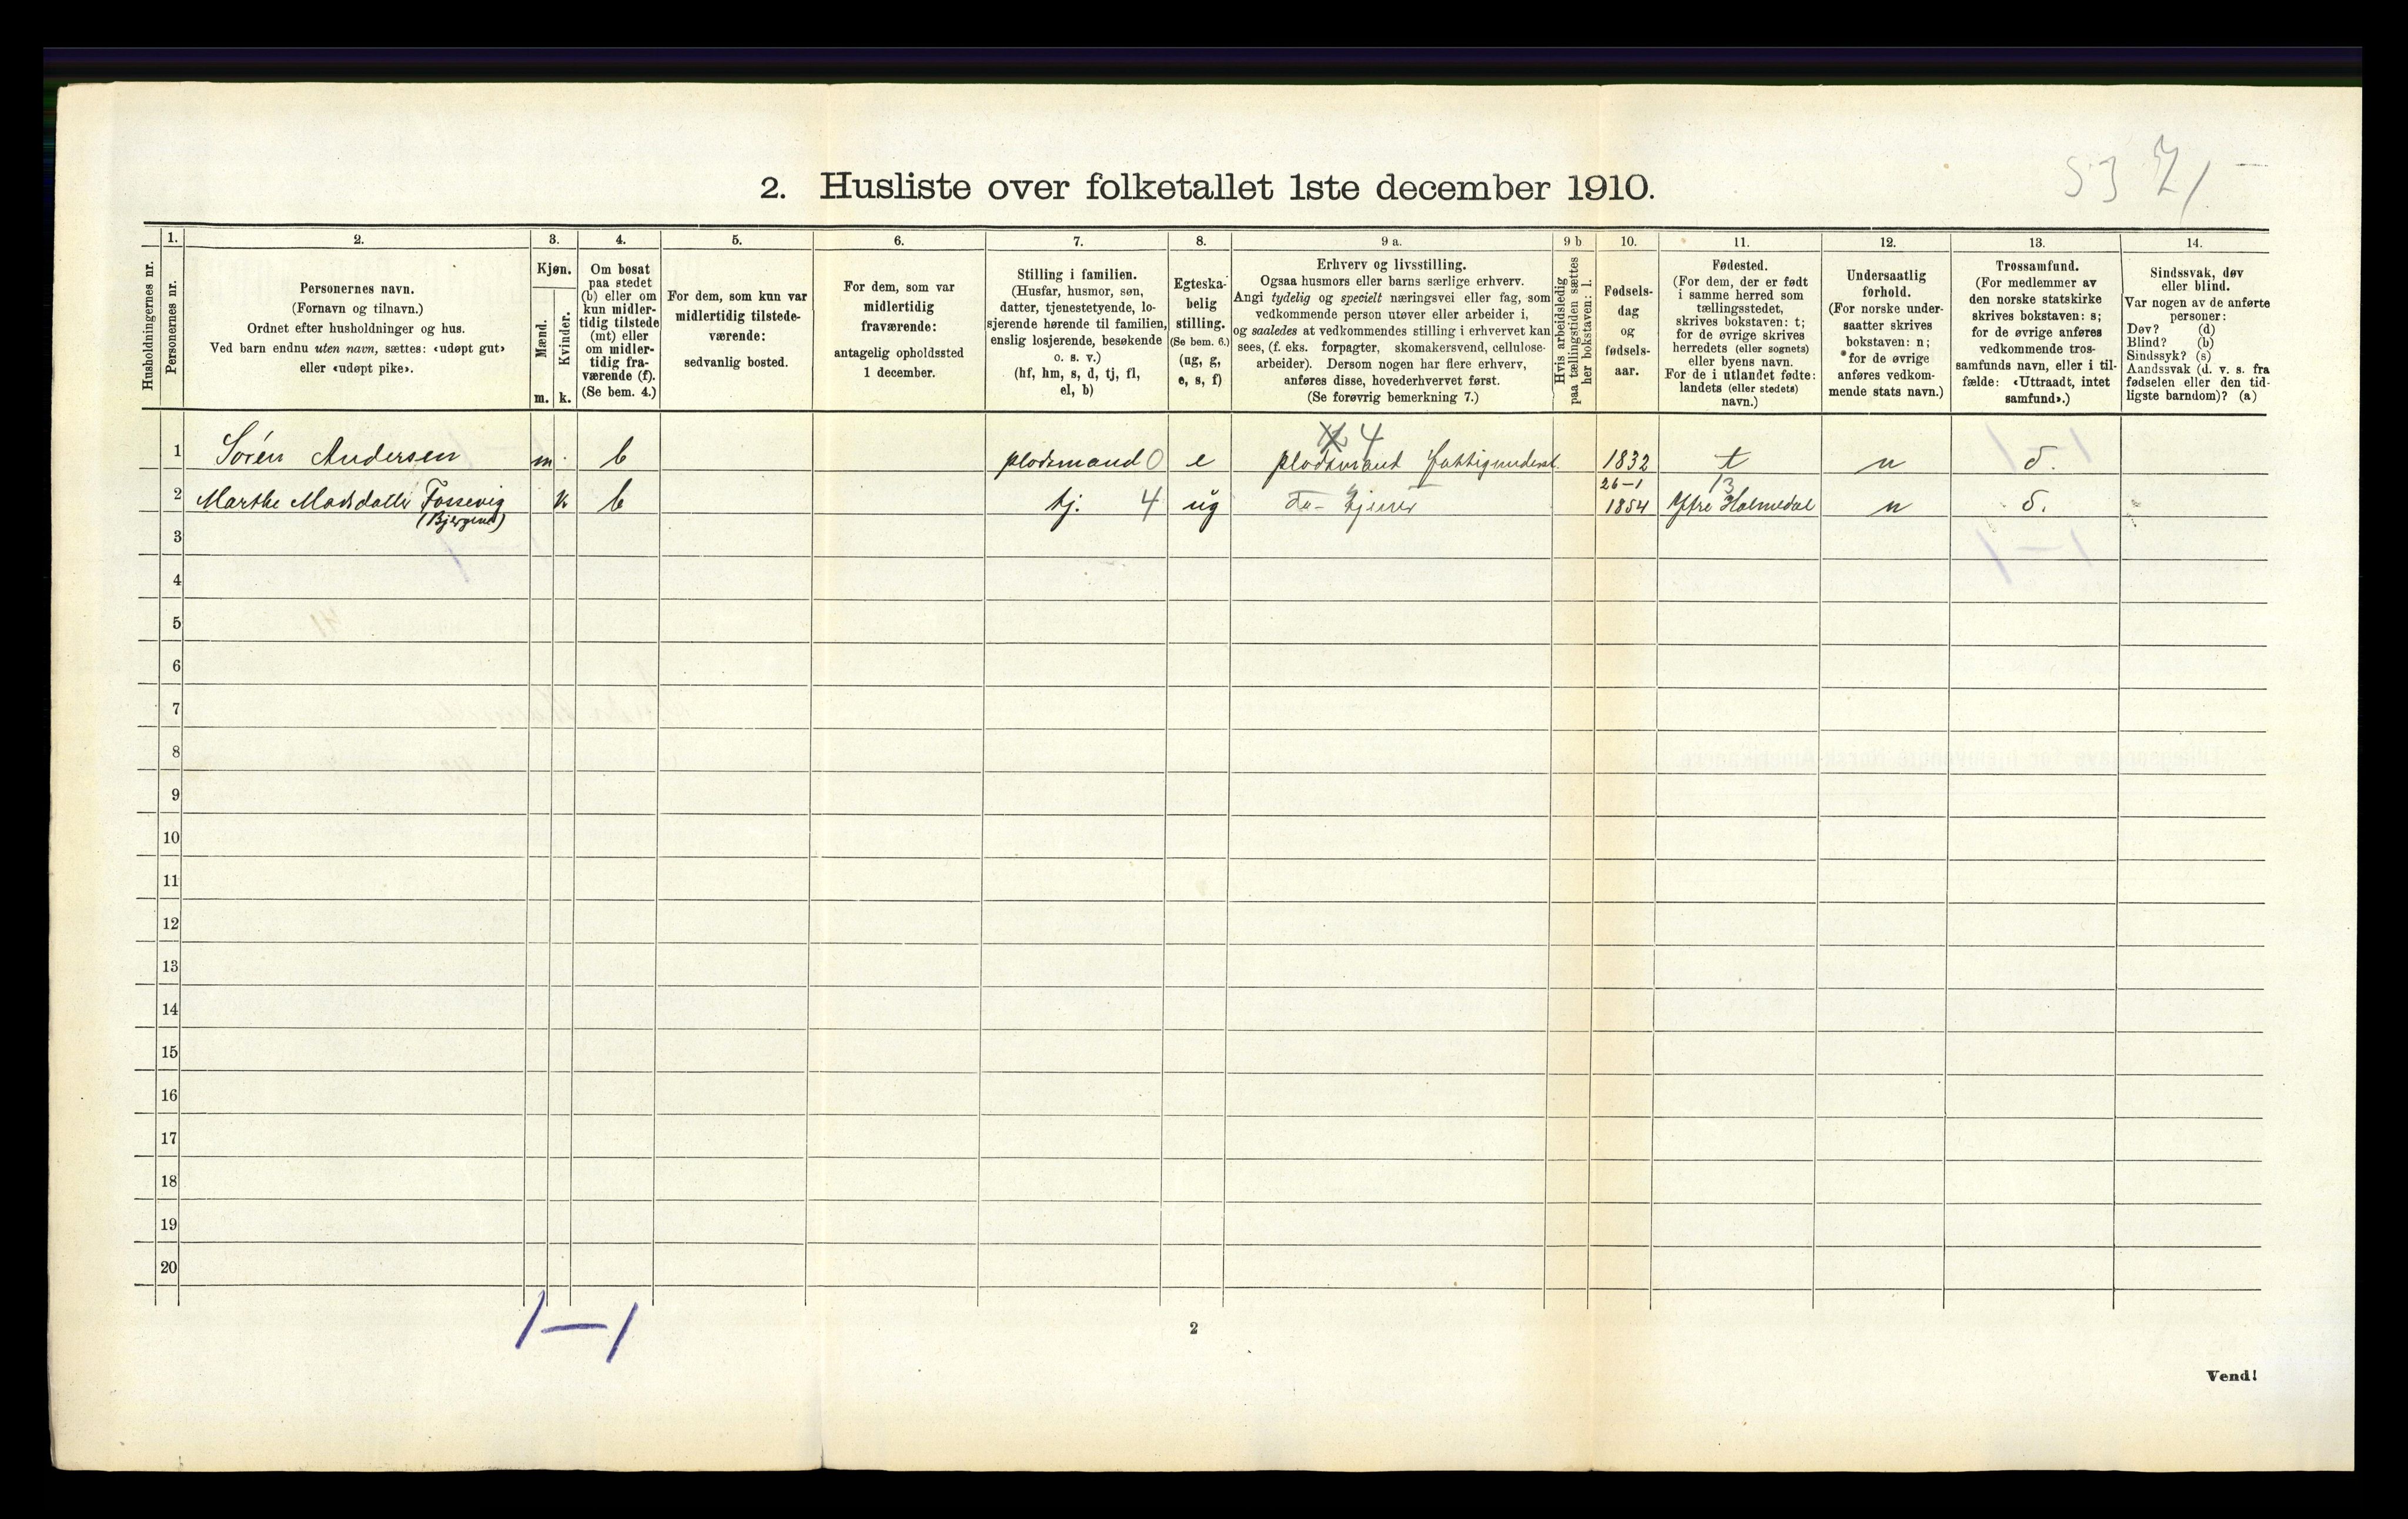 53 71
2. Husliste over folketallet 1ste december 1910.
Husholdningernes nr.
1.
Personernes nr.
2.
Personernes navn.
(Fornavn og tilnavn.)
Ordnet efter husholdninger og hus.
Ved barn endnu uten navn, sættes: «udøpt gut»
eller «udøpt pike».
3.
Kjøn.
Mænd.
Kvinder.
m. k.
4.
Om bosat
paa stedet
(b) eller om
kun midler-
tidig tilstede
(mt) eller
om midler-
tidig fra-
værende (f).
(Se bem. 4.)
5.
For dem, som kun var
midlertidig tilstede-
værende:
sedvanlig bosted.
6.
For dem, som var
midlertidig
fraværende:
antagelig opholdssted
1 december.
7.
Stilling i familien.
(Husfar, husmor, søn,
datter, tjenestetyende, lo-
sjerende hørende til familien,
enslig losjerende, besøkende
o. s. v.)
(hf, hm, s, d, tj, fl,
el, b)
8.
Egteska-
belig
stilling.
(Se bem. 6.)
(ug, g,
e, s, f)
9 a.
Erhverv og livsstilling.
Ogsaa husmors eller barns særlige erhverv.
Angi tydelig og specielt næringsvei eller fag, som
vedkommende person utøver eller arbeider i,
og saaledes at vedkommendes stilling i erhvervet kan
sees, (f. eks. forpagter, skomakersvend, cellulose-
arbeider). Dersom nogen har flere erhverv,
anføres disse, hovederhvervet først.
(Se forøvrig bemerkning 7.)
9 b
Hvis arbeidsledig
paa tællingstiden sættes
her bokstaven: l.
10.
Fødsels-
dag
og
fødsels-
aar.
11.
Fødested.
(For dem, der er født
i samme herred som
tællingsstedet,
skrives bokstaven: t;
for de øvrige skrives
herredets (eller sognets)
eller byens navn.
For de i utlandet fødte:
landets (eller stedets)
navn.)
12.
Undersaatlig
forhold.
(For norske under-
saatter skrives
bokstaven: n;
for de øvrige
anføres vedkom-
mende stats navn.)
13.
Trossamfund.
(For medlemmer av
den norske statskirke
skrives bokstaven: s;
for de øvrige anføres
vedkommende tros-
samfunds navn, eller i til-
fælde: «Uttraadt, intet
samfund».)
14.
Sindssvak, døv
eller blind.
Var nogen av de anførte
personer:
Døv? (d)
Blind? (b)
Sindssyk? (s)
Aandssvak (d. v. s. fra
fødselen eller den tid-
ligste barndom)? (a)
4
1 Sören Andersen m. b plodsmand 0 e plodsmand 1832 t n s.
26-1 13
2 Marthe Madsdatter Fossevig k b tj. 4 ug 1854 Ytre Holmedal n s.
3
4
5
6
7
8
9
10
11
12
13
14
15
16
17
18
19
20
1—1
2
Vend!